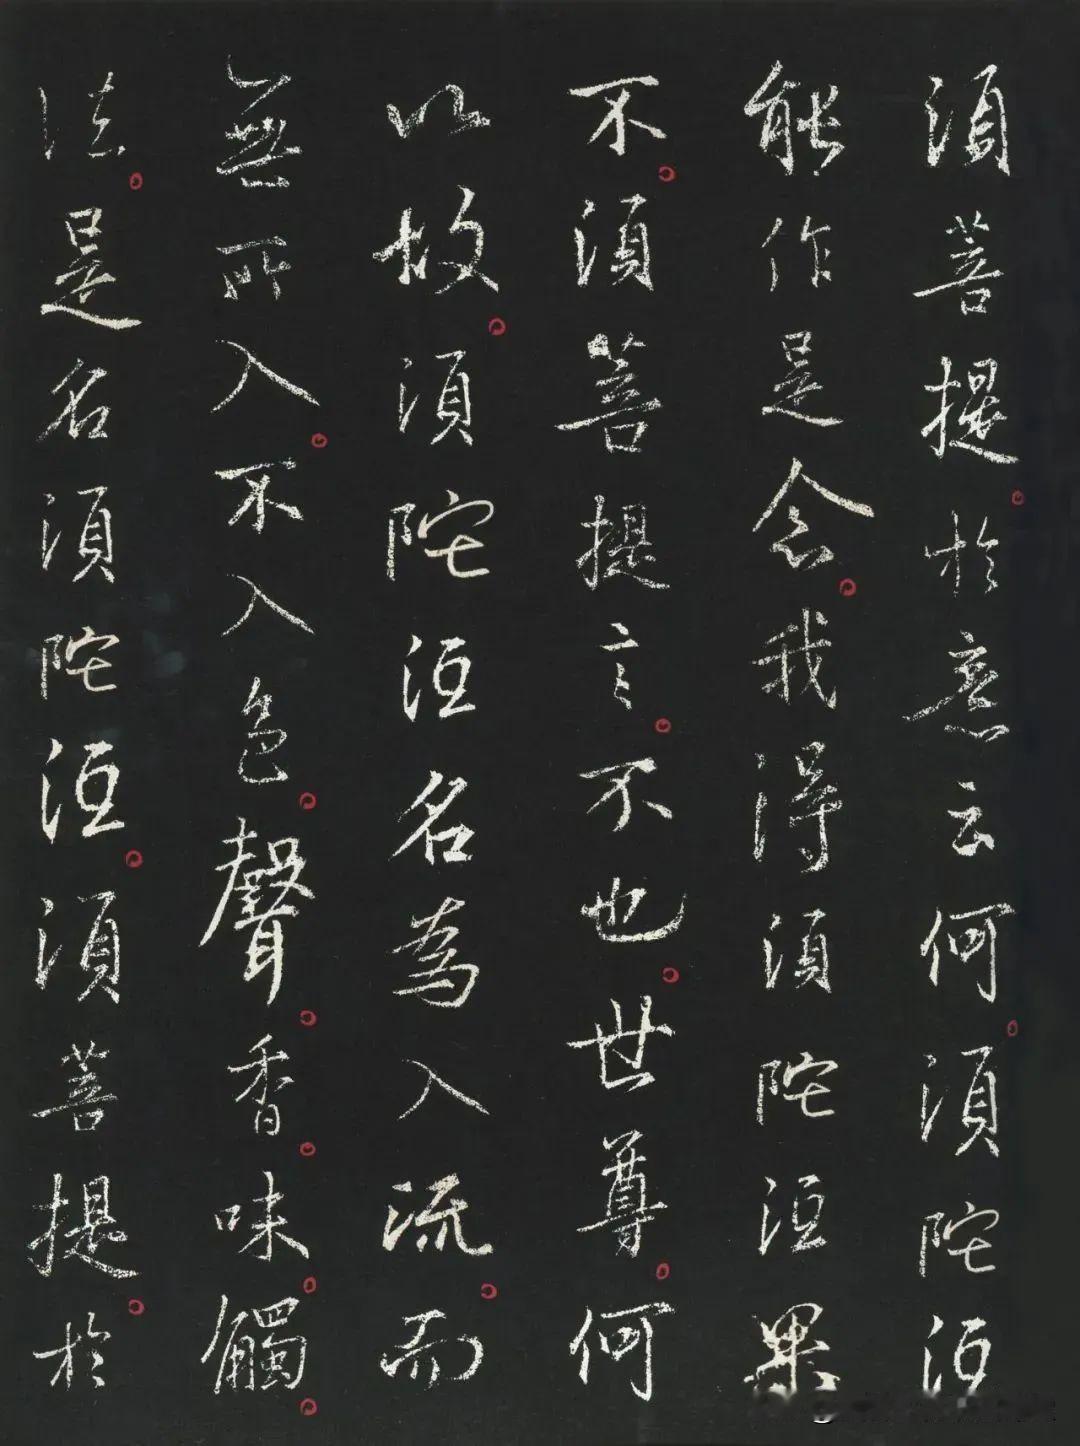 須菩提。於意云何。須陀洹
能作是念。我得須陀洹果
不。須菩提言。不也。世尊。何
以故。須陀洹名為入流。而
無所入。不入色。聲。香。味。觸。
法。是名須陀洹。須菩提。於